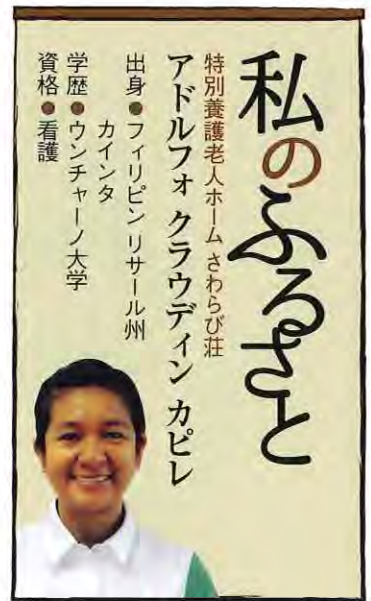 私のふるさと
特別養護老人ホーム さわらび荘
アドルフォ クラウディン カピレ
出身●フィリピン リサール州
カインタ
学歴●ウンチャーノ大学
資格●看護